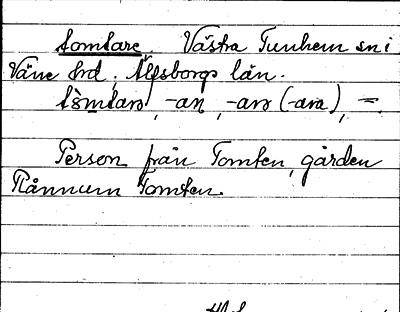 tomtare. Västra Tunhem sn i
Väne hrd, Älfsborgs län.
-an, -arə (-ara), =.
Person från Tomten, gården
Rånnum Tomten.